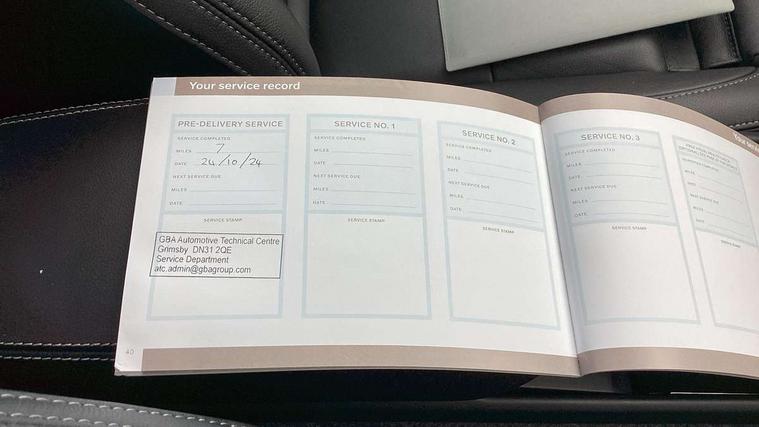 Your service record
PRE-DELIVERY SERVICE
SERVICE COMPLETED
MILES 7
DATE 24/10/24
NEXT SERVICE DUE
MILES
DATE
SERVICE STAMP
GBA Automotive Technical Centre
Grimsby DN31 2QE
Service Department
atc.admin@gbagroup.com
SERVICE NO. 1
SERVICE COMPLETED
MILES
DATE
NEXT SERVICE DUE
MILES
DATE
SERVICE STAMP
SERVICE NO. 2
SERVICE COMPLETED
MILES
DATE
NEXT SERVICE DUE
MILES
DATE
SERVICE STAMP
40
SERVICE NO. 3
SERVICE COMPLETED
MILES
DATE
NEXT SERVICE DUE
MILES
DATE
SERVICE STAMP
MILES
DATE
NEXT SERVICE DUE
MILES
DATE
SERVICE STAMP